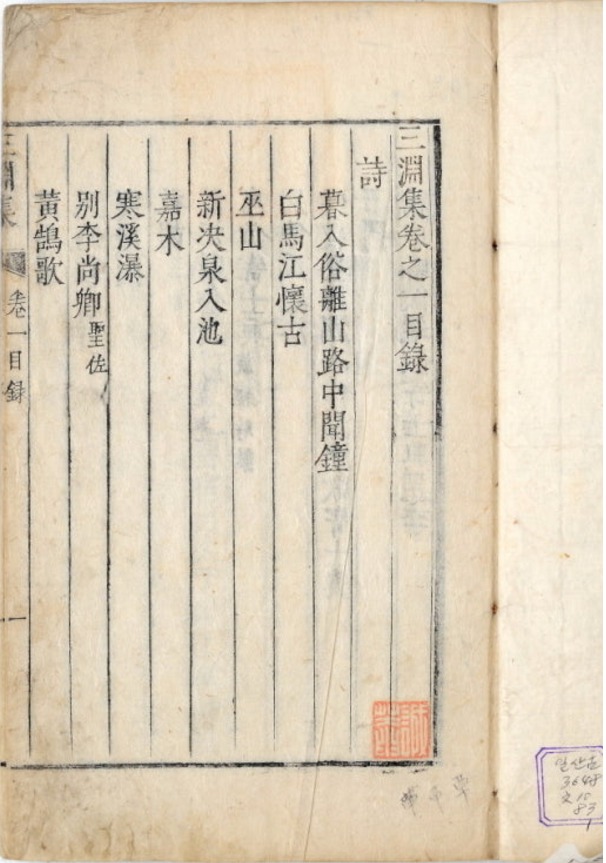 三淵集卷之一目錄
詩
暮入俗離山路中聞鐘
白馬江懷古
巫山
新决泉入池
嘉木
寒溪瀑
別李尚卿聖佐
黃鵠歌
三淵集 卷一目錄 一
일산古
3648
文10
83
1